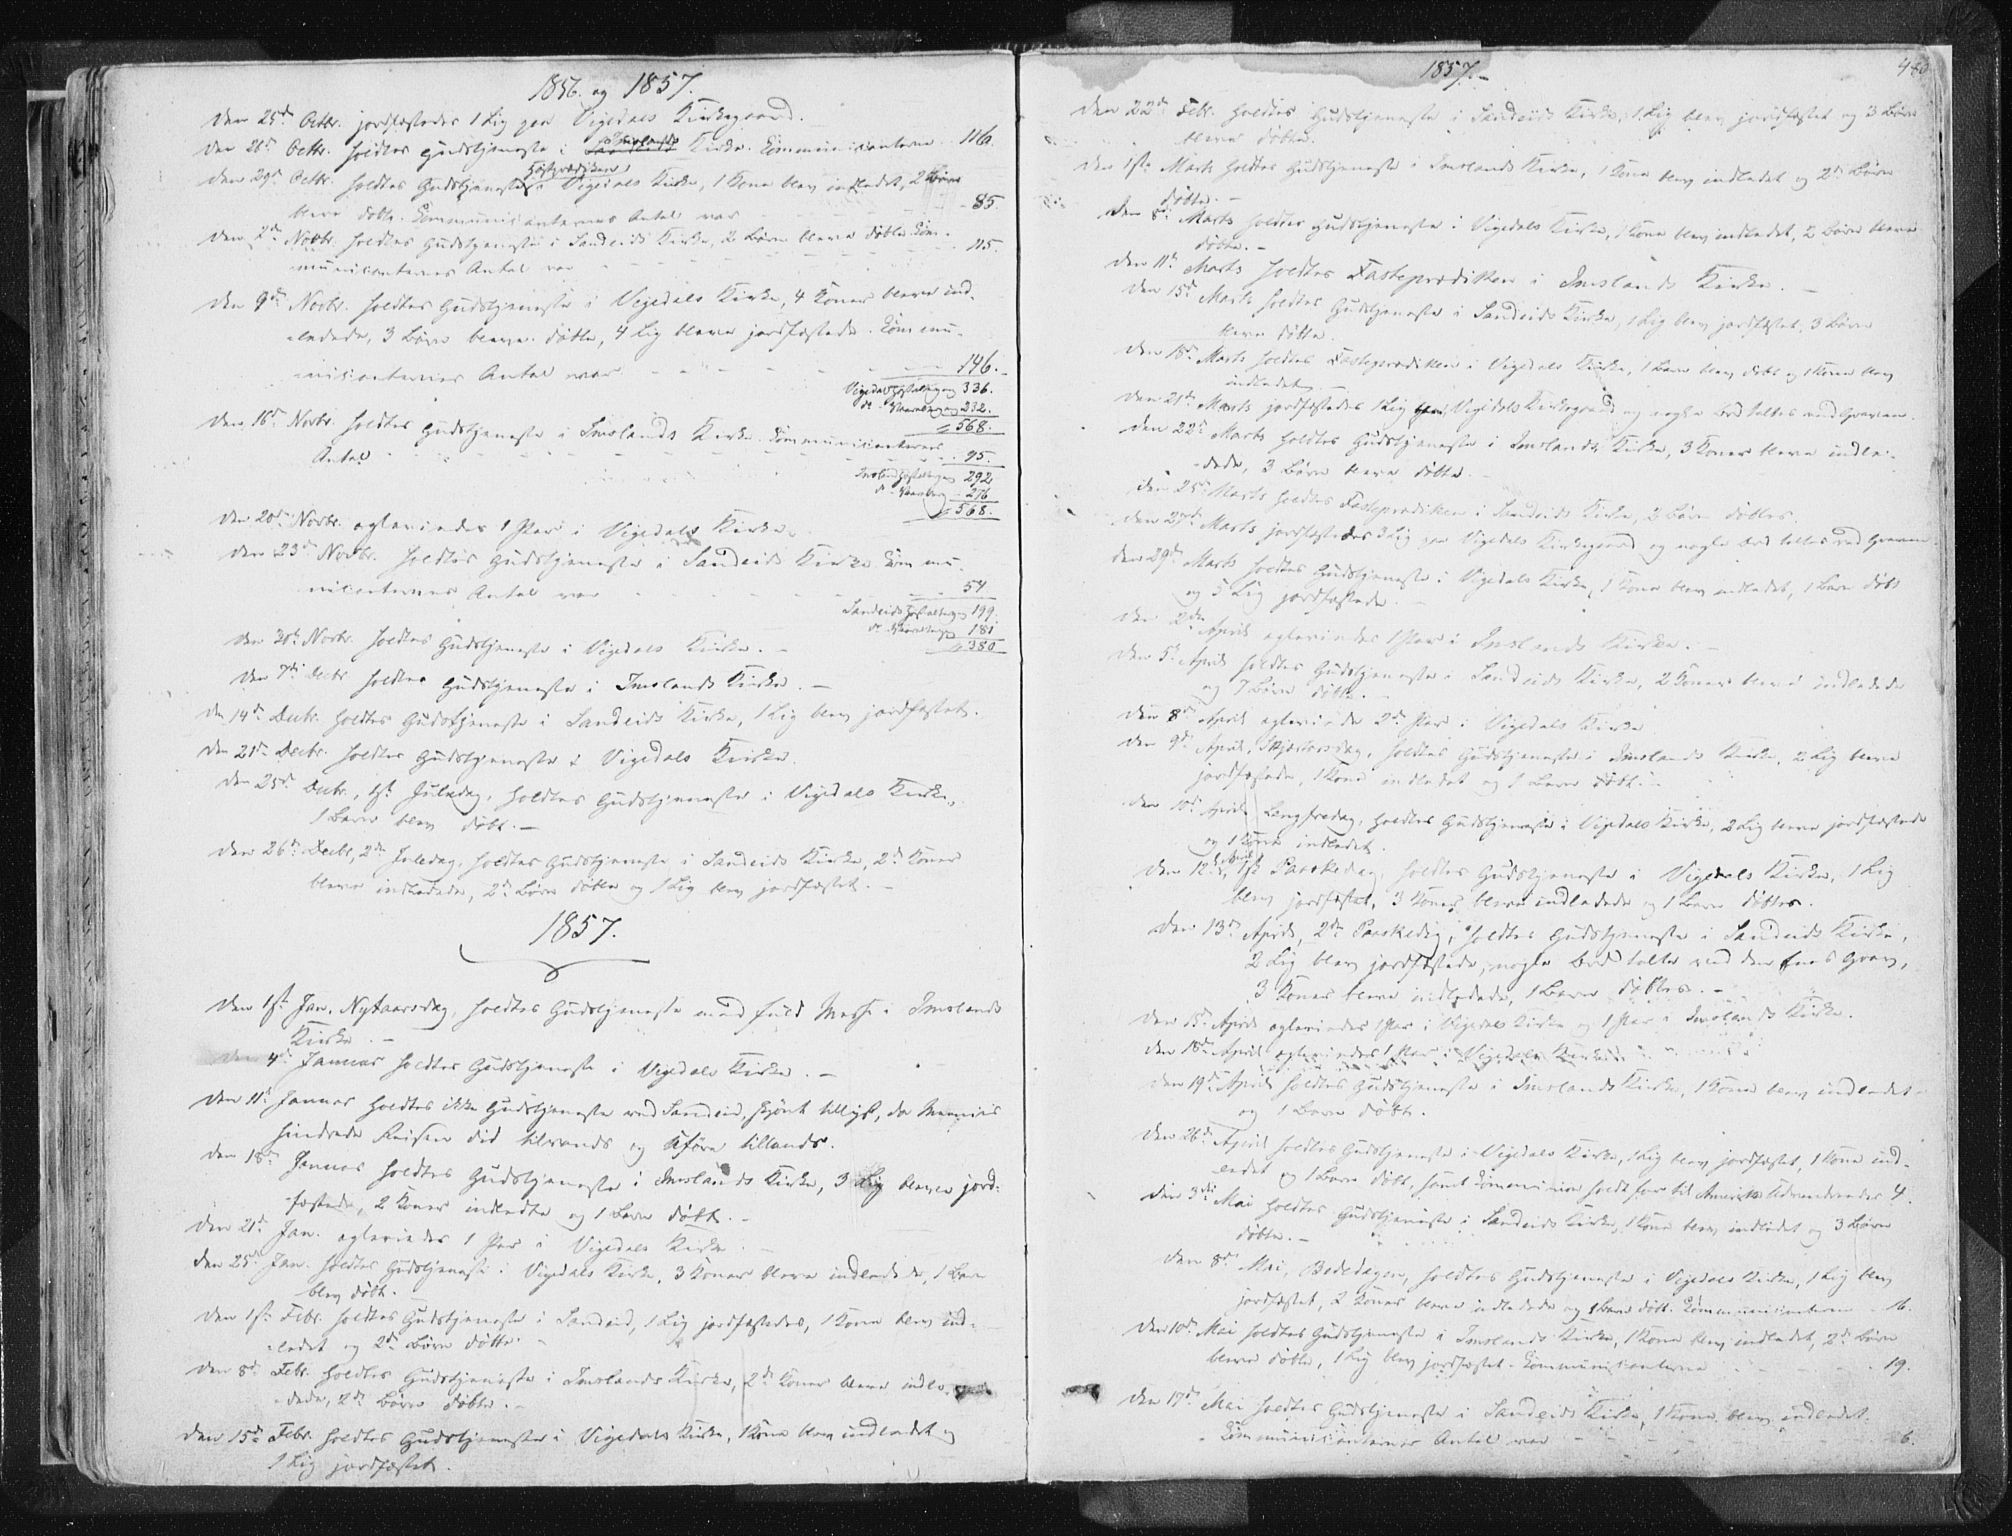 1856. og 1857.
Den 25de Octbr. jordfæstedes 1 Lig paa Vigedals Kirkegaard.
Den 26de Octbr. holdtes Gudstjeneste i Imslands Kirke. Communicanterne 116.
Høstprædiken
Den 29de Octbr. holdtes Gudstjeneste i Vigedals Kirke, 1 Kone blev indledet, 2 Børn
bleve døbte. Communicanternes Antal var - - - 85.
Den 2den Novbr. holdtes Gudstjeneste i Sandeids Kirke, 2 Børn bleve døbte. Com-
municanternes Antal var - - - 115.
Den 9de Novbr. holdtes Gudstjeneste i Vigedals Kirke, 4 Koner bleve ind-
ledede, 3 Børn bleve døbte, 4 Lig bleve jordfæstede. Commu-
nicanternes Antal var - - - 146.
Vigedal Høstaltergang 336.
do - Vaaraltergang 232.
568.
Den 16de Novbr. holdtes Gudstjeneste i Imslands Kirke. Communicanternes
Antal - - - 95.
Imsland Høstaltergang 292
do - Vaaraltergang - 276
568.
Den 20de Novbr. egteviedes 1 Par i Vigedals Kirke.
Den 23de Novbr. holdtes Gudstjeneste i Sandeids Kirke. Commu-
nicanternes Antal var - - - 54
Sandeids Høstaltergang 199.
do - Vaaraltergang 181
380
Den 30te Novbr. holdtes Gudstjeneste i Vigedals Kirke. -
Den 7de Decbr. holdtes Gudstjeneste i Imslands Kirke. -
Den 14de Decbr. holdtes Gudstjeneste i Sandeids Kirke, 1 Lig blev jordfæstet.
Den 21de Decbr. holdtes Gudstjeneste i Vigedals Kirke.
Den 25de Decbr., 1ste Juledag, holdtes Gudstjeneste i Vigedals Kirke,
1 Barn blev døbt. -
Den 26de Decbr, 2den Juledag, holdtes Gudstjeneste i Sandeids Kirke, 2de Koner
bleve indledede, 2de Børn døbte og 1 Lig blev jordfæstet. -
1857.
Den 1ste Jan. Nytaarsdag, holdtes Gudstjeneste med fuld Messe i Imslands
Kirke. -
Den 4de Januar holdtes Gudstjeneste i Vigedals Kirke. -
Den 11te Januar holdtes ikke Gudstjeneste ved Sandeid, skjønt tillyst, da
hindrede Reisen did tilvands og Uføre tillands.
Den 18de Januar holdtes Gudstjeneste i Imslands Kirke, 3 Lig bleve jord-
fæstede, 2 Koner indledte og 1 Barn døbt. -
Den 21de Jan. egteviedes 1 Par i Vigedals Kirke. -
Den 25de Jan. holdtes Gudstjeneste i Vigedals Kirke, 3 Koner bleve indledede, 1 Barn
blev døbt.
Den 1ste Febr. holdtes Gudstjeneste i Sandeid, 1 Lig jordfæstedes, 1 Kone blev ind-
ledet og 2de Børn døbte. -
Den 8de Febr. holdtes Gudstjeneste i Imslands Kirke, 2de Koner bleve indle-
dede, 2de Børn døbte. -
Den 15de Febr. holdtes Gudstjeneste i Vigedals Kirke, 1 Kone blev indledet og
1 Lig jordfæstet.
1857. -
480
Den 22de Febr. holdtes Gudstjeneste i Sandeids Kirke, 1 Lig blev jordfæstet og 3 Børn
bleve døbte.
Den 1ste Marts holdtes Gudstjeneste i Imslands Kirke, 1 Kone blev indledet og 2de Børn
døbte. -
Den 8de Marts holdtes Gudstjeneste i Vigedals Kirke, 1 Kone blev indledet, 2 Børn bleve
døbte. -
Den 11te Marts holdtes Fasteprædiken i Imslands Kirke. -
Den 15de Marts holdtes Gudstjeneste i Sandeids Kirke, 1 Lig blev jordfæstet, 3 Børn
bleve døbte.
Den 18de Marts holdtes Fasteprædiken i Vigedals Kirke, 1 Barn blev døbt og 1 Kone blev
indledet. -
Den 21de Marts jordfæstedes 1 Lig paa Vigedals Kirkegaard og nogle Ord taltes ved Graven.
Den 22de Marts holdtes Gudstjeneste i Imslands Kirke, 3 Koner bleve indle-
dede, 3 Børn bleve døbte. -
Den 25de Marts holdtes Fasteprædiken i Sandeids Kirke, 2 Børn døbtes.
Den 27de Marts jordfæstedes 3 Lig paa Vigedals Kirkegaard og nogle Ord taltes ved Graven.
Den 29de Marts holdtes Gudstjeneste i Vigedals Kirke, 1 Kone blev indledet, 1 Barn døbt
og 5 Lig jordfæstede.
Den 2den April egteviedes 1 Par i Imslands Kirke. -
Den 5te April holdtes Gudstjeneste i Sandeids Kirke, 2 Koner bleve indledede
og 7 Børn døbte. -
Den 8de April egteviede 2de Par i Vigedals Kirke
Den 9de April, Skjærtorsdag, holdtes Gudstjeneste i Imslands Kirke, 2 Lig bleve
jordfæstede, 1 Kone indledet og 1 Barn døbt. -
Den 10de April, Langfredag, holdtes Gudstjeneste i Vigedals Kirke, 2 Lig bleve jordfæstede
og 1 Kone indledet.
Den 12te April, 1ste Paaskedag, holdtes Gudstjeneste i Vigedals Kirke, 1 Lig
blev jordfæstet, 3 Koner bleve indledede og 1 Barn døbtes.
Den 13de April, 2den Paaskedag, holdtes Gudstjeneste i Sandeids Kirke,
2 Lig blev jordfæstede, nogle Ord talte ved den Enes Grav,
3 Koner bleve indledede, 1 Barn døbtes. -
Den 15de April egteviedes 1 Par i Vigedals Kirke og 1 Par i Imslands Kirke.
Den 18de April egteviedes 1 Par i Vigedals Kirke.
Den 19de April holdtes Gudstjeneste i Imslands Kirke, 1 Kone blev indledet
og 1 Barn døbt.
Den 26de April holdtes Gudstjeneste i Vigedals Kirke, 1 Lig blev jordfæstet, 1 Kone ind-
ledet og 1 Barn døbt, samt Communion holdt for til Amerika Udvandrende 4.
Den 3die Mai holdtes Gudstjeneste i Sandeids Kirke, 1 Kone blev indledet og 3 Børn
døbte. -
Den 8de Mai, Bededagen, holdtes Gudstjeneste i Vigedals Kirke, 1 Lig blev
jordfæstet, 2 Koner bleve indledede og 1 Barn døbt. Communicanterne - 16.
Den 10de Mai holdtes Gudstjeneste i Imslands Kirke, 1 Kone blev indledet, 2de Børn
bleve døbte, 1 Lig blev jordfæstet. Communicanterne - - - 19.
Den 17de Mai holdtes Gudstjeneste i Sandeids Kirke, 1 Kone blev indledet.
Communicanternes Antal var - - - 6.